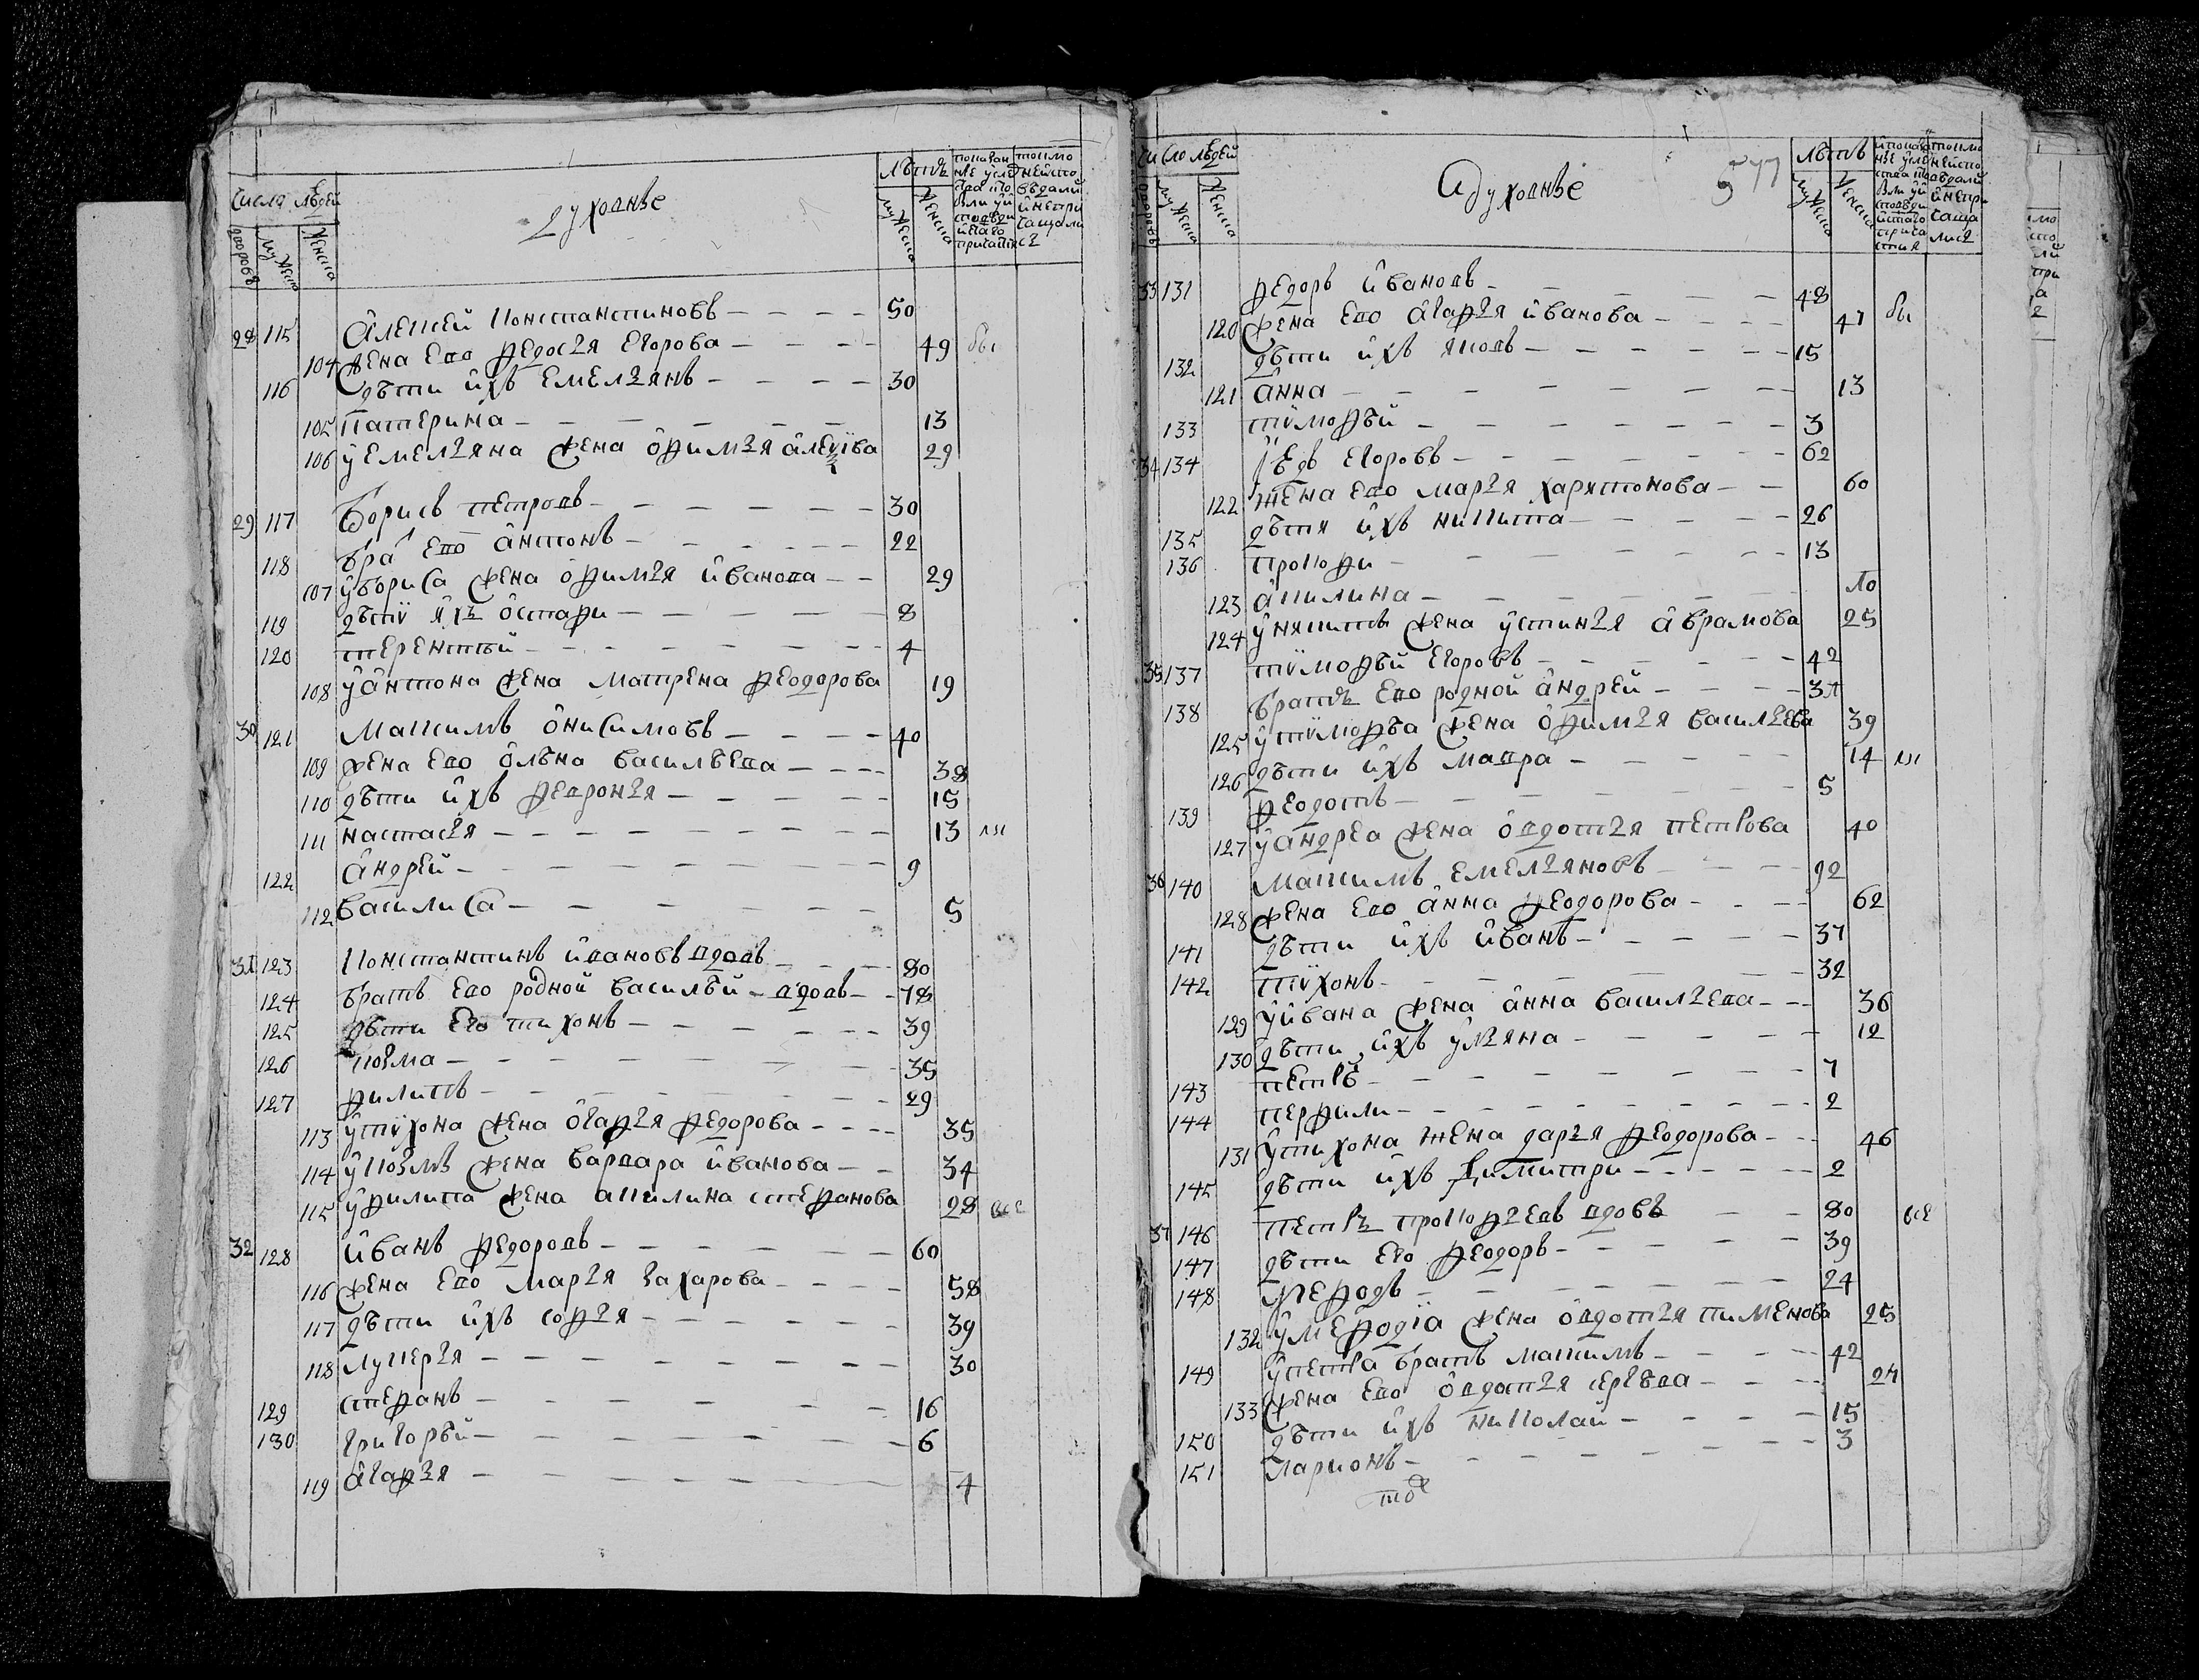 числа людей
духовнъе
лътъ
дворовъ
мужеска
женска
мужеска
женска
28 115 Алеѯей Константиновъ 50
104 жена ево Ѳедосья егорова 49 бы
116 дъти ихъ емельянъ 30
105 катерина 13
106 у емельяна жена офимья алеѯ1ва 29
29 117 Борисъ петровъ 30
118 бра ево антонъ 22
107 у бориса жена офимья иванова 29
119 дъти ихъ остафи 8
120 терентъй 4
108 у антона жена матрена феодорова 19
30 121 Маѯимъ онисимовъ 40
109 жена ево олъна васильева 38
110 дъти ихъ февронья 15
111 настасья 13 ли
122 андрей 9
112 василиса 5
31 123 константинъ ивановъ вдовъ 80
124 братъ ево родной василъй вдовъ 78
125 дъти его тихонъ 39
126 козма 35
127 филипъ 29
113 у тихона жена огафья федорова 35
114 у козмы жена варвара иванова 34
115 у филипа жена акилина стефанова 28 все
32 128 иванъ федоровъ 60
116 жена ево марья захарова 58
117 дъти ихъ софья 39
118 лукерья 30
129 стефанъ 16
130 григоръй 6
119 агафья 4
число людей
духовнъе
577
лътъ
дворовъ
мужеска
женска
мужеска
женска
33 131 федоръ ивановъ 48
120 жена ево агафья иванова 47 бы
132 дъти ихъ яковъ 15
121 анна 13
133 тимофъй 3
34 134 егоровъ 62
122 жена ево марья харитонова 60
135 дътя ихъ никита 26
136 прокофи 13
123 акилина 10
124 у никиты жена устинья аврамова 25
35 137 тимофъй егоровъ 42
138 братъ ево родной андрей 37
125 у тимофъа жена офимья васильева 39
126 дъти ихъ мавра 14 ли
139 феодотъ 5
127 у андреа жена овдотья петрова 40
36 140 маѯимъ емельяновъ 92
128 жена ево анна феодорова 62
141 дъти ихъ иванъ 37
142 тихонъ 32
129 у ивана жена анна васильева 36
130 дъти ихъ ульяна 12
143 петръ 7
144 перфили 2
131 у тихона жена дарья феодорова 46
145 дъти ихъ димитри 2
37 146 петръ прокофьевъ вдовъ 80 все
147 дъти его феодоръ 39
148 мефодъ 24
132 у мефодіа жена овдотья пименова 25
149 у петра братъ маѯимъ 42
133 жена ево овдотья сергъва 24
150 дъти ихъ николай 15
151 ларионъ 3